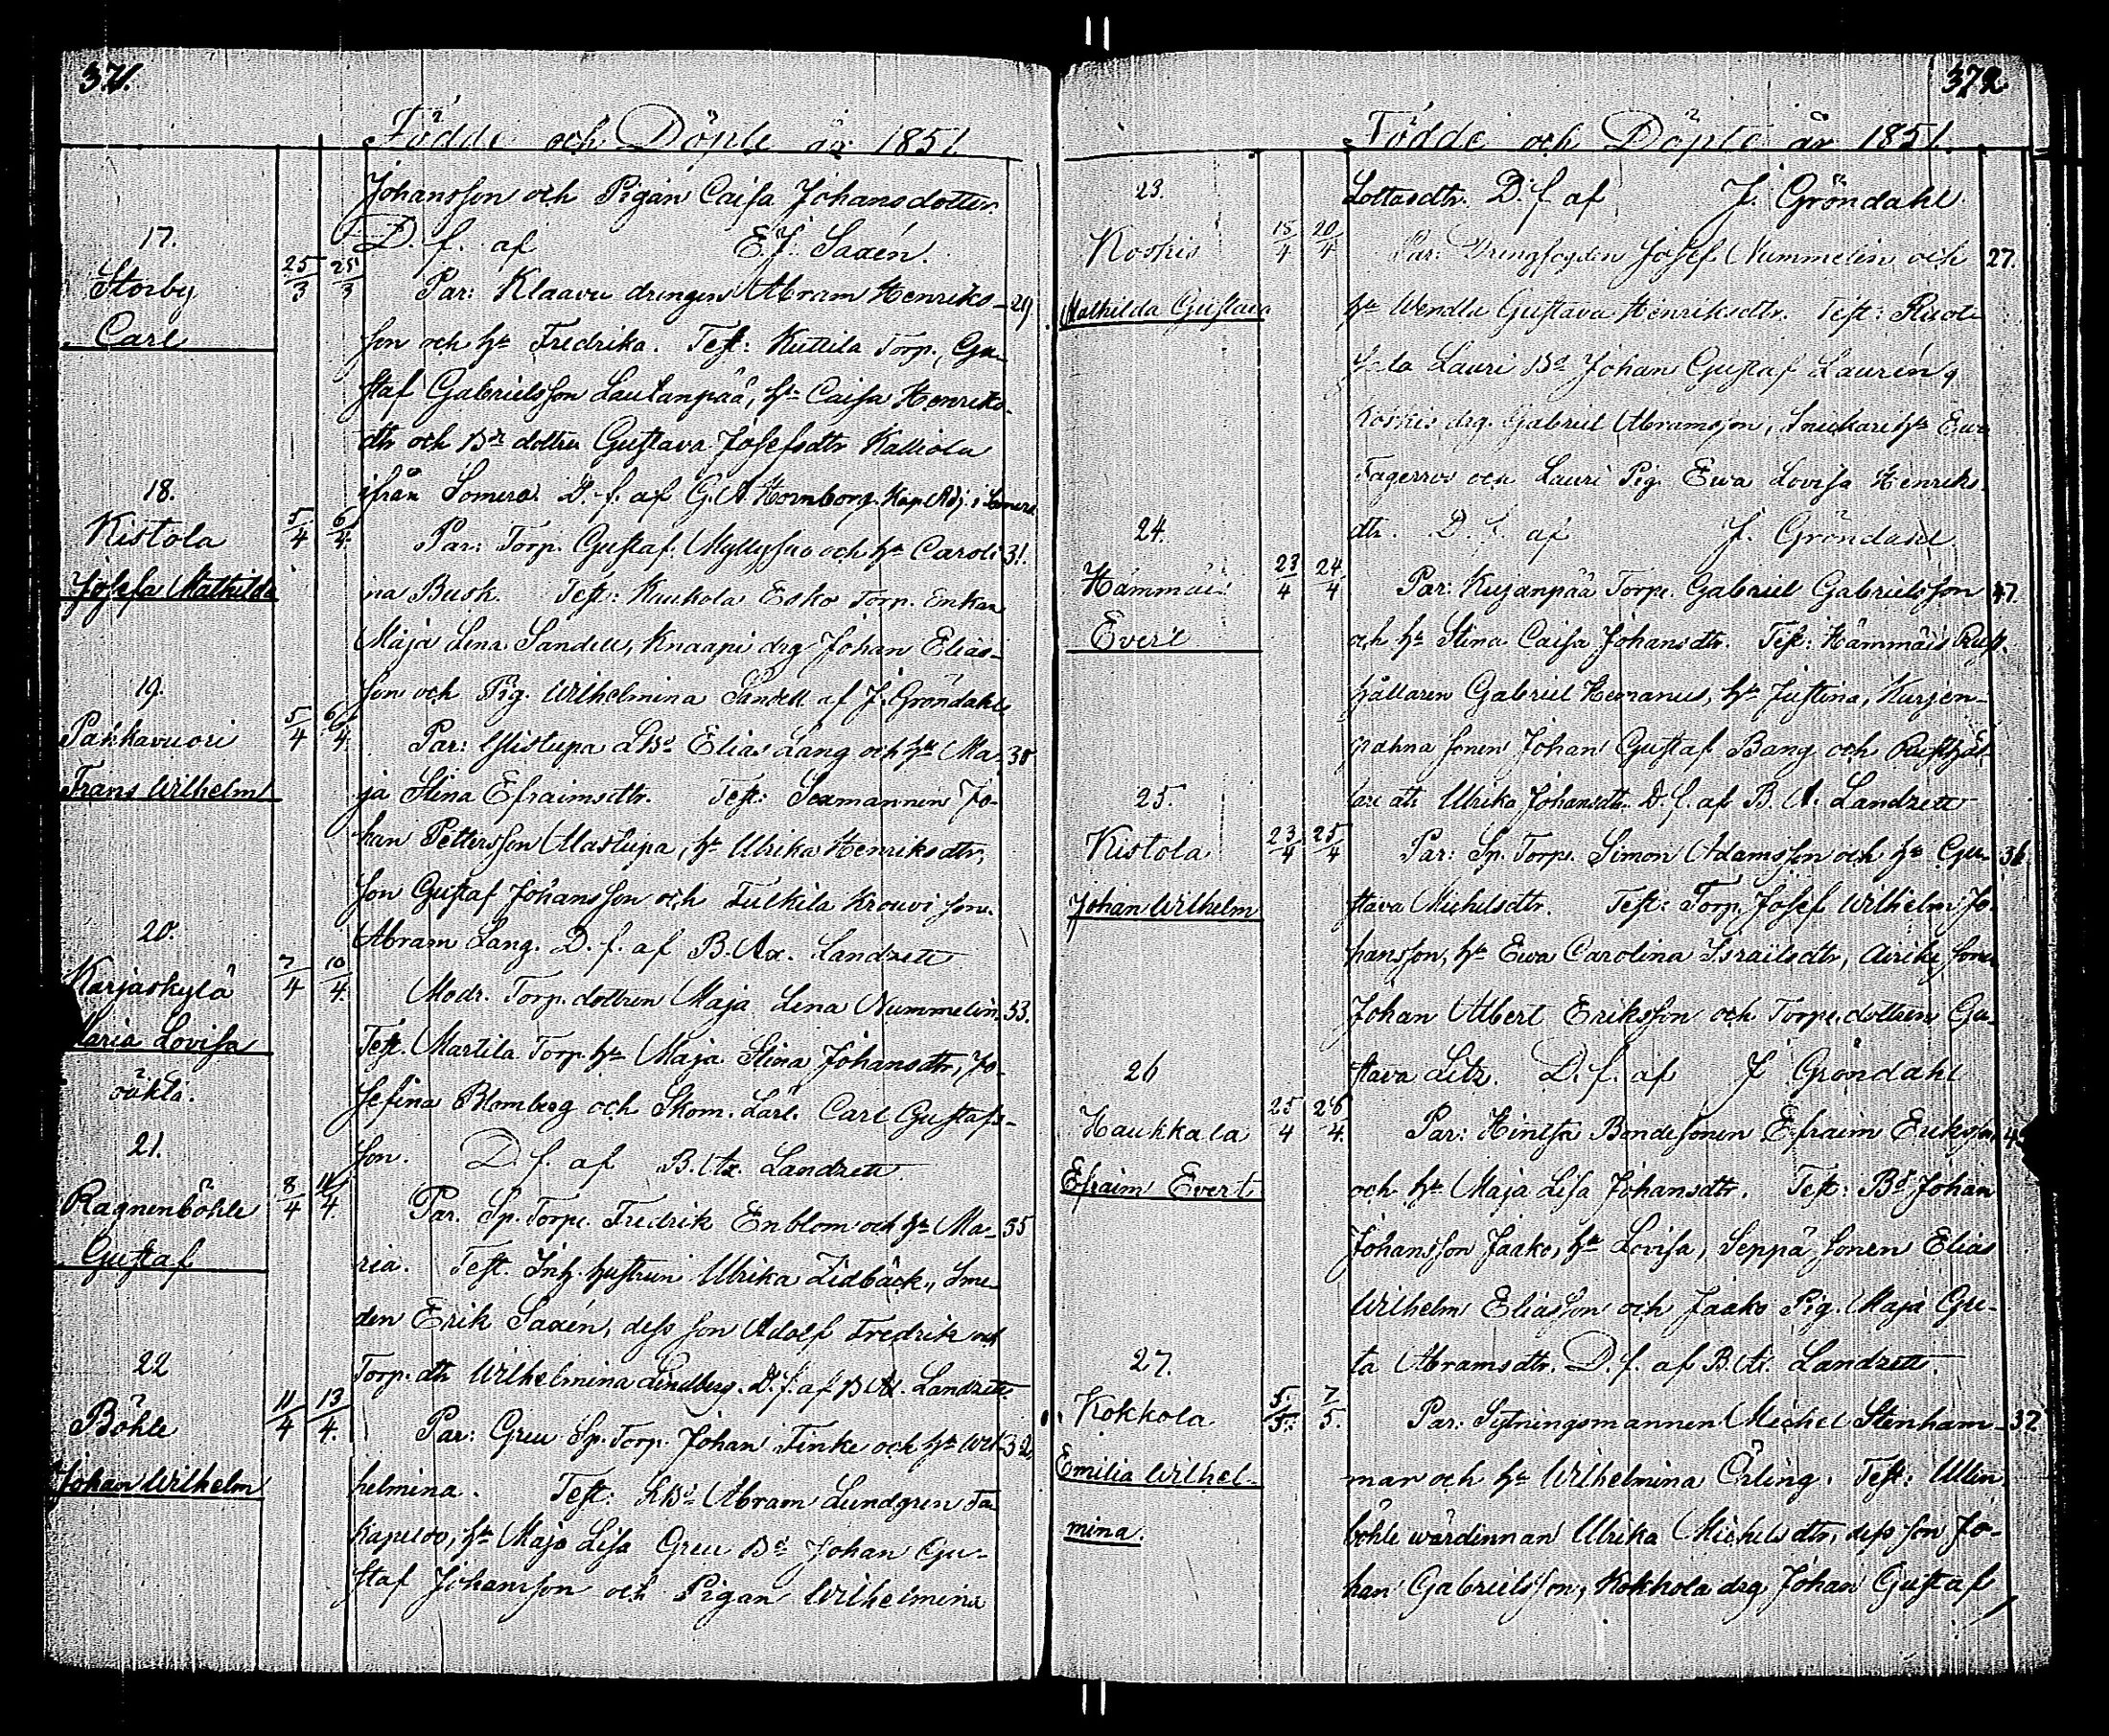 371.
Födde och Döpte år 1851.
Johansson och Pigan Caisa Johansdotter.
D. f. af E. J. Saxén.
17.
Storby 25/3 25/3
Carl
Par: Klaavu drengen Abram Henriks- 29.
son och hu Fredrika. Test: Kuttila Torp., Gu-
staf Gabrielsson Lautanpää, hu Caisa Henriks-
dtr och Bd dottren Gustava Josefsdtr Kalliola
ifrån Somero. D. f. af G. A. Hornborg. Kap. Adj. i Somero
18.
Kistola 5/4 6/4
Josefa Mathilda
Par: Torp. Gustaf Myllysuo och hu Caroli- 31.
na Busk. Test: Kaukola Esko Torp. Enkan
Maja Lena Sandell, Knaapi drg Johan Elias-
son och Pig. Wilhelmina Sandell af J. Gröndahl.
19.
Pakkavuori 5/4 6/4
Frans Wilhelm
Par: Elias Lang och hu Ma- 38
ja Stina Efraimsdtr. Test: Sexmannen Jo-
han Pettersson Mastupa, hu Ulrika Henriksdtr,
son Gustaf Johansson och Tulkila Krouvi son.
Abram Lang. D. f. af B. Ax. Landzett
20.
Karjaskylä 7/4 10/4
Maria Lovisa
oäkta.
Modr. Torp. dottren Maja Lena Nummelin. 33.
Test. Martila Torp. hu Maja Stina Johansdtr, Jo-
sefina Blomberg och Skom. Lärl. Carl Gustafs-
son. D. f. af B. Ax. Landzett
21.
Ragnenböhle 8/4 11/4
Gustaf
Par. Sp. Torp. Fredrik Enblom och hu Ma- 35
ria. Test. Inh. hustrun Ulrika Lidbäck, Sme-
den Erik Saxén, dess son Adolf Fredrik och
Torp. dtr Wilhelmina Lindberg. D. f. af B. Ax. Landzett
22
Böhle 11/4 13/4
Johan Wilhelm
Par: Greu Sp. Torp. Johan Finke och hu Wil- 32,
helmina. Test: Abram Lundgren
hu Maja Lisa Greu Bd Johan Gu-
staf Johansson och Pigan Wilhelmina
372
Födde och Döpte år 1851.
Lottasdtr. D. f. af J. Gröndahl.
23.
Koskis 15/4 20/4
Mathilda Gustava
Par: Drengfogden Josef Nummelin och 27.
hu Wendla Gustava Henriksdtr. Test:
Lauri Bd Johan Gustaf Laurén,
Koskis drg. Gabriel Abramsson, Snickari hu Ewa
Fagerroos och Lauri Pig. Ewa Lovisa Henriks-
dtr. D. f. af J. Gröndahl
24.
Hämmäis 23/4 24/4
Evert
Par: Kujanpää Torp. Gabriel Gabrielsson 47.
och hu Stina Caisa Johansdtr. Test: Hämmäis Rust-
hållaren Gabriel Hemanus, hu Justina, Kurjen-
pahna sonen Johan Gustaf Bang och Rusthål-
lare dtr Ulrika Johansdtr. D. f. af B. A. Landzett
25.
Kistola 23/4 25/4
Johan Wilhelm
Par: Sp. Torp. Simon Adamsson och hu Gu- 36
stava Michelsdtr. Test: Torp. Josef Wilhelm Jo-
hansson, hu Ewa Carolina Israilsdtr, Airike son
Johan Albert Eriksson och Torp. dottren Gu-
stava Litz. D. f. af J. Gröndahl
26
Haukkala 25/4 26/4
Efraim Evert
Par: Hintsa Bondesonen Efraim Eriksson
och hu Maja Lisa Johansdtr. Test: Bd Johan
Johansson Jaako, hu Lovisa, Seppä sonen Elias
Wilhelm Eliasson och Jaako Pig. Maja Gre-
ta Abramsdtr. D. f. af B. Ax. Landzett.
27.
Kokkola 5/5. 7/5.
Emilia Wilhel-
mina.
Par: Sytningsmannen Michel Stenham- 32
mar och hu Wilhelmina Örling. Test: Ullin-
böhle wärdinnan Ulrika Michelsdtr, dess son Jo-
han Gabrielsson, Kokkola drg Johan Gustaf